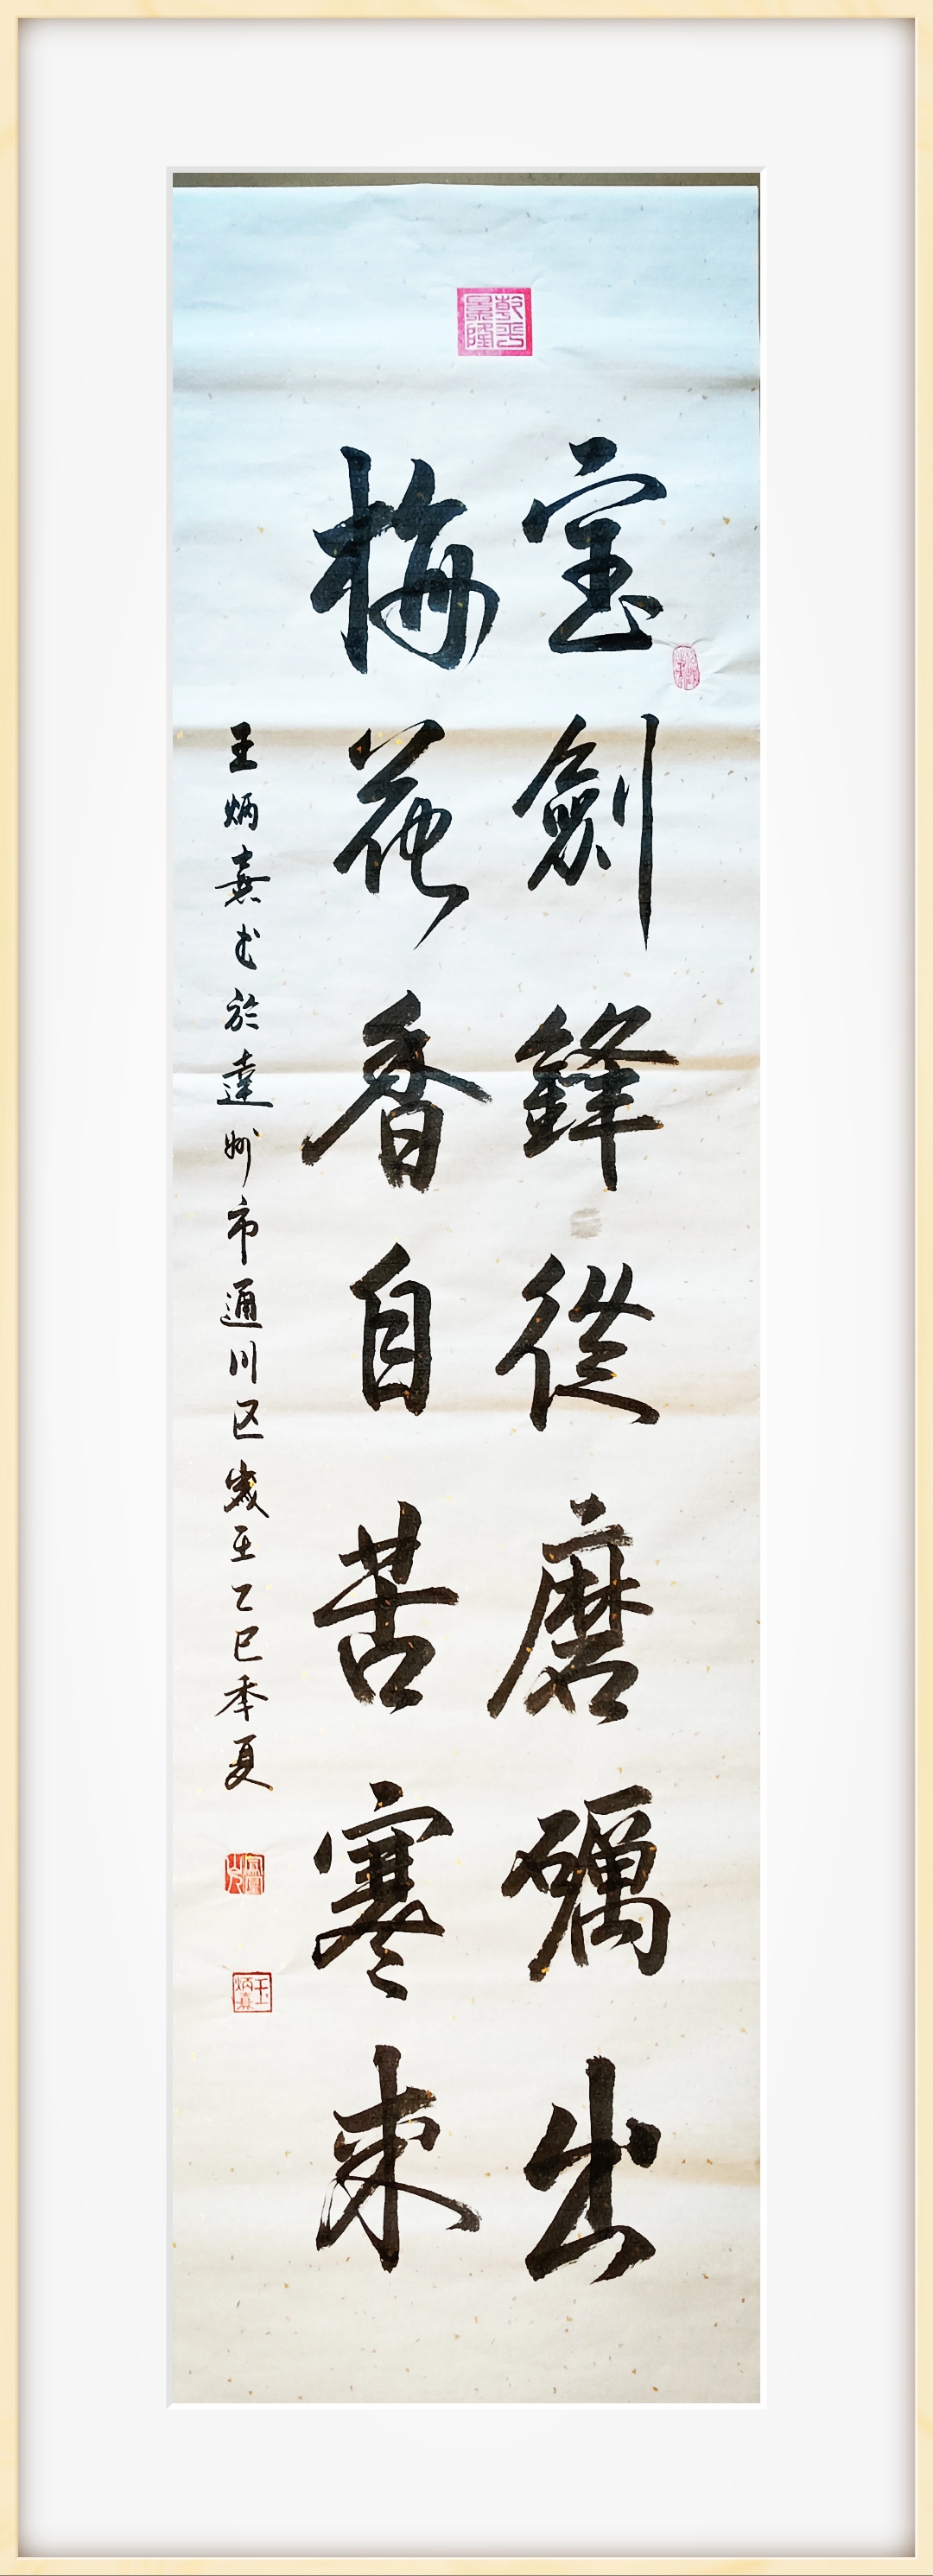 宝劍鋒從磨礪出
梅花香自苦寒来
王炳熹书於達州市通川区歲至乙巳季夏